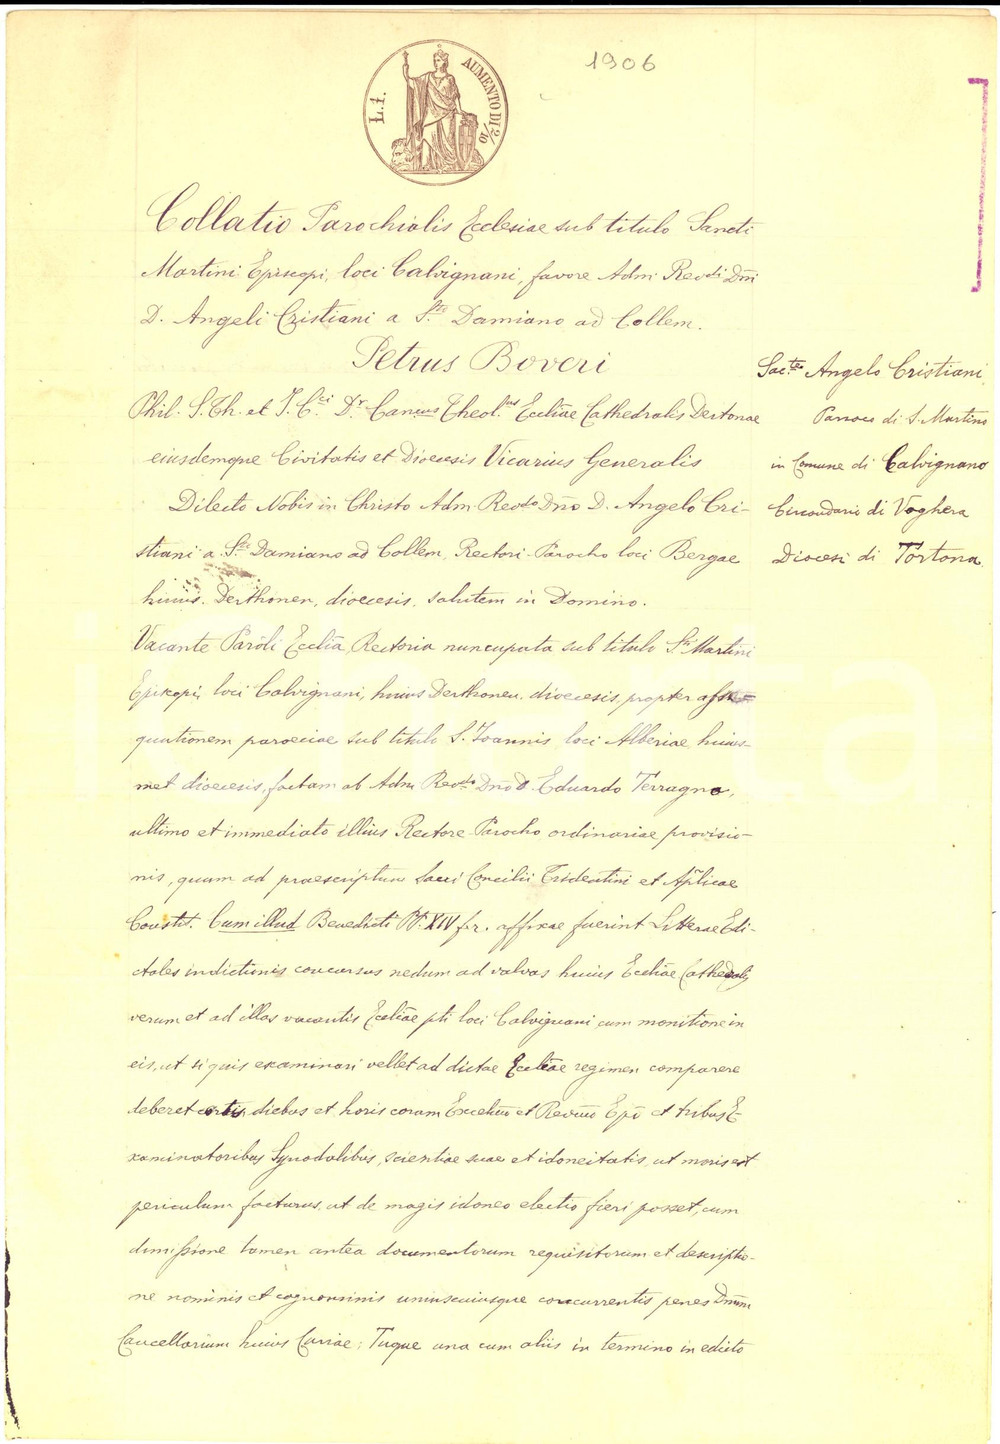 1906
L.1. AUMENTO DI 2/10
Collatio Parochialis Ecclesiae sub titulo Sancti
Martini Episcopi, loci Calvignani, favore Adm. Revdi Dmi
D. Angeli Cristiani a Sto Damiano ad Collem.
Petrus Boveri
Phil. S. Th. et J. Cci Dr Cancus Theol.us Eccliae Cathedralis Dertonae
eiusdemque Civitatis et Dioecesis Vicarius Generalis
Dilecto Nobis in Christo Adm. Revdo Dño D. Angelo Cri-
stiani a Sto Damiano ad Collem, Rectori-Parocho loci Bergae
huius Derthonen. dioecesis, salutem in Domino.
Vacante Paroli Ecclia, Rectoria nuncupata sub titulo Sti Martini
Episcopi, loci Calvignani, huius Derthonen. dioecesis, propter asse-
quutionem paroeciae sub titulo S. Joannis, loci Alberiae huius-
met dioecesis, factam ab Adm. Revdo Dño D. Eduardo Terragno,
ultimo et immediato illius Rectore-Parocho ordinariae provisio-
nis, quum ad praescriptum Sacri Concilii Tridentini et Aplicae
Constit. Cum illud Benedicti PP. XIV f. r. affixae fuerint Litterae Edi-
ctales indictionis concursus nedum ad valvas huius Eccliae Cathedralis
verum et ad illas vacantis Eccliae pti loci Calvignani cum monitione in
eis, ut si quis examinari vellet ad dictae Eccliae regimen comparere
deberet certis diebus et horis coram Excellmo et Revmo Epo et tribus E-
xaminatoribus Synodalibus, scientiae suae et idoneitatis, ut moris est
periculum facturus, ut de magis idoneo electio fieri posset, cum
dimissione tamen antea documentorum requisitorum et descriptio-
ne nominis et cognominis uniuscuiusque concurrentis penes Dmum
Cancellarium huius Curiae; Tuque una cum aliis in termino in edicto
Sacte Angelo Cristiani
Parroco di S. Martino
in Comune di Calvignano
Circondario di Voghera
Diocesi di Tortona